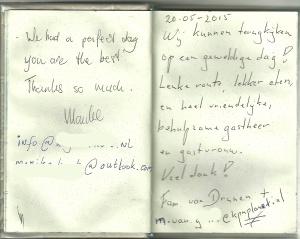 - We had a perfect day
you are the best
Thanks so much.
info@m
.NL
@outlook.com
20-05-2015
Wij kunnen terugkijken
op een geweldige dag!
Leuke route, lekker eten,
en heel vriendelijke,
behulpzame gastheer
en gastvrouw.
Veel dank!
Fam van Drunen +
m.van.g ... @kpnplanet.nl